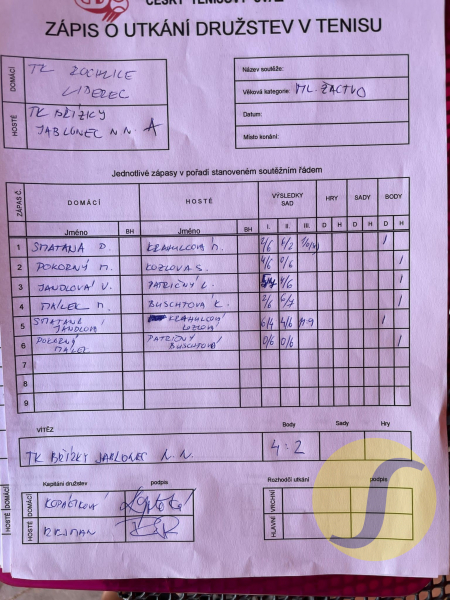 ČESKÝ TENISOVÝ SVAZ
ZÁPIS O UTKÁNÍ DRUŽSTEV V TENISU
DOMÁCÍ
TK
LIBEREC
HOSTÉ
TK BŘÍZKY
JABLONEC N.N. A
Název soutěže:
Věková kategorie: ML. ŽACTVO
Datum:
Místo konání:
Jednotlivé zápasy v pořadí stanoveném soutěžním řádem
ZÁPAS Č. DOMÁCÍ HOSTÉ VÝSLEDKY SAD HRY SADY BODY
Jméno BH Jméno BH I. II. III. D H D H D H
1 SMATANA D. KRAHULCOVÁ M. 2/6 6/2 1
2 POKORNÝ M. KOZLOVA S. 4/6 0/6 1
3 JANDLOVÁ V. PATRIČNÝ L. 4/6 1
4 MÁLEK M. BUSCHTOVA K. 2/6 1
5 SMATANA KRAHULCOVÁ 6/4 4/6 1
JANDLOVÁ
6 POKORNÝ PATRIČNÝ 0/6 0/6 1
MÁLEK BUSCHTOVÁ
7
8
9
VÍTĚZ Body Sady Hry
TK BŘÍZKY JABLONEC N.N. 4:2
Kapitáni družstev podpis Rozhodčí utkání podpis
DOMÁCÍ
HOSTÉ
VRCHNÍ
HLAVNÍ